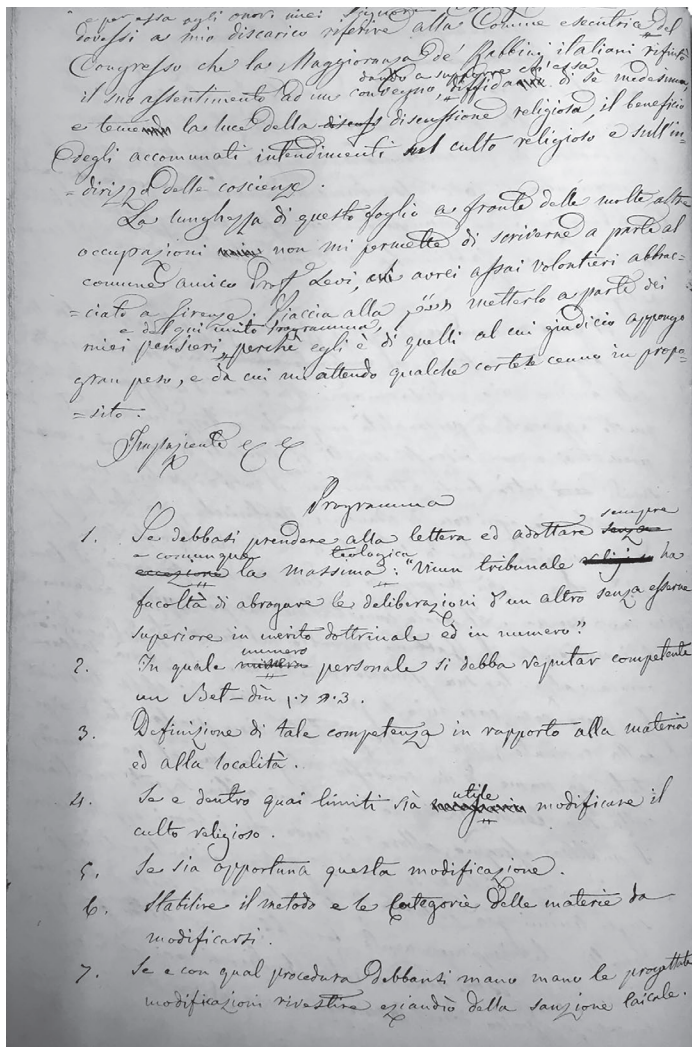 e per essa agli onori miei Signori
dovessi a mio discarico riferire alla Comune esecutrice del
Congresso che la Maggioranza de' Rabbini italiani rifiutò
dando a supporre ch'essa
il suo assentimento ad un convegno, diffidando di sè medesima,
e temendo la luce della discuss discussione religiosa, il beneficio
degli accomunati intendimenti sul culto religioso e sull'in=
=dirizzo delle coscienze.
La lunghezza di questo foglio a fronte delle molte altre
occupazioni non mi permette di scriverne a parte al
comune amico Prof. Levi, che avrei assai volontieri abbrac=
=ciato a Firenze. Piaccia alla metterlo a parte dei
e del qui unito programma,
miei pensieri, perchè egli è di quelli al cui giudicio appongo
gran peso, e da cui mi attendo qualche cortese cenno in propo=
=sito.
Impaziente
Programma
sempre
1. Se debbasi prendere alla lettera ed adottare senza
e comunque teologica
eccezione la massima: "Niun tribunale religioso ha
facoltà di abrogare le deliberazioni d'un altro senza esserne
superiore in merito dottrinale ed in numero?"
numero
2. In quale personale si debba reputar competente
un Bet-dìn
3. Definizione di tale competenza in rapporto alla materia
ed alla località.
utile
4. Se e dentro quai limiti sia modificare il
culto religioso.
5. Se sia opportuna questa modificazione.
6. Stabilire il metodo e le Categorie delle materie da
modificarsi.
7. Se e con qual procedura debbansi mano mano le progettate
modificazioni rivestire eziandìo della sanzione laicale.